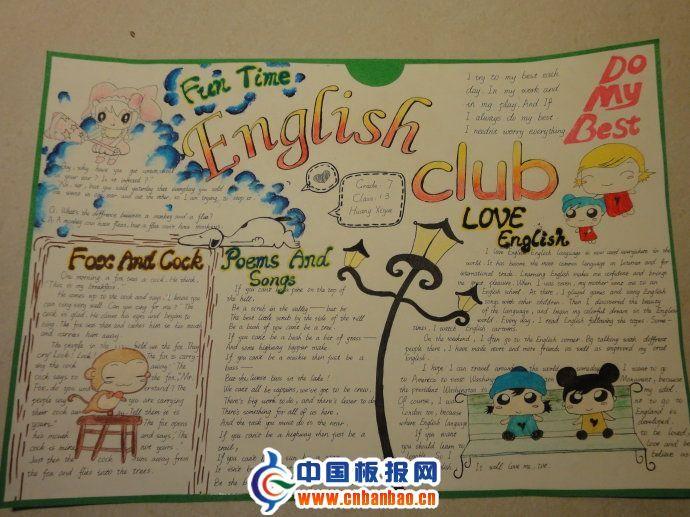 Fun Time
English
club
Do
My
Best
I try to my best each
day. In my work and
in my play. And If
I always do my best
I needn't worry everything
Grade: 7
Class: 13
Huang
Q: What's the difference between a monkey and a flea?
A: A monkey can have fleas, but a flea can't have monkeys
Fox And Cock
One morning a fox sees a cock. He think,
"This is my breakfast."
He comes up to the cock and says, "I know you
can sing very well. Can you sing for me?" The
cock is glad. He closes his eyes and begins to
sing. The fox sees that and catches him in his mouth
and carries him away.
The people in the field see the fox. They
cry: "Look! Look! The fox is carry
the cock away." The
cock says to the fox, "Mr.
Fox, do understand? The
people say you are carrying
their cock Tell them it is
yours. The fox opens
his mouth and says, "The
cock is mine yours."
Just then the cock away from
the fox and flies into the trees.
Poems And
Songs
If you can't be a pine on the top of
the hill,
Be a scrub in the valley — but be
The best little scrub by the side of the rill
Be a bush if you can't be a tree.
If you can't be a bush be a bit of grass —
And some highway happier make
If you can't be a muskie then just be a
bass —
But the liveliest bass in the lake!
We can't all be captains, we've got to be crew,
There's big work to do, and there's lesser to do
There's something for all of us here,
And the task you must do is the near.
If you can't be a highway then just be a
trail,
If you can't be sun be a
It isn't
LOVE
English
I love English. English language is now used everywhere in the
world. It has become the most common language on Internet and for
international trade. Learning English make me confident and brings
me great pleasure. When I was seven, my mother sent me to an
English school. At there, I played games and sang English
songs with other children. Then I discovered the beauty
of the language, and began my colorful dream in the English
world. Every day, I read English following the tapes. Some-
times, I watch English cartoons.
On the weekend, I often go to the English corner. By talking with different
people there, I have made more and more friends as well as improved my oral
English.
I hope I can travel around the world someday. I want to go
to America to visit Washington Monument, because
the president Washington
Of course, I want to go to
London too, because England is
where English language developed.
If you want to be loved
you should learn to love and be
It will love me, too.
中国板报网
www.cnbanbao.cn